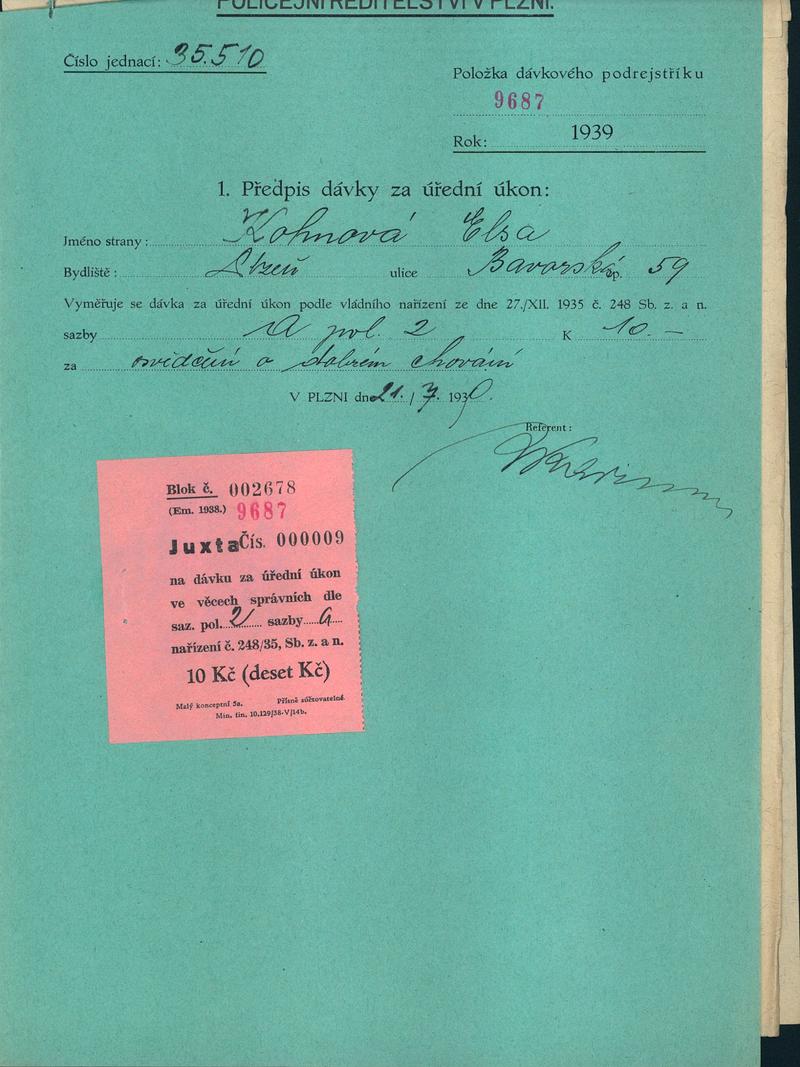 POLICEJNÍ ŘEDITELSTVÍ V PLZNI.
Číslo jednací: 35.510
Položka dávkového podrejstříku
9687
Rok: 1939
1. Předpis dávky za úřední úkon:
Jméno strany: Kohnová Elsa
Bydliště: Plzeň ulice Bavorská čp. 59
Vyměřuje se dávka za úřední úkon podle vládního nařízení ze dne 27./XII. 1935 č. 248 Sb. z. a n.
sazby A pol. 2 K 10.-
za osvidčení o dobrém chování
V PLZNI dne 21. / 7. 1939.
Referent:
Blok č. 002678
(Em. 1938.) 9687
Juxta Čís. 000009
na dávku za úřední úkon
ve věcech správních dle
saz. pol. 2 sazby A
nařízení č. 248/35, Sb. z. a n.
10 Kč (deset Kč)
Malý konceptní 5a. Přísně zúčtovatelné.
Min. fin. 10.129/38-V/14b.